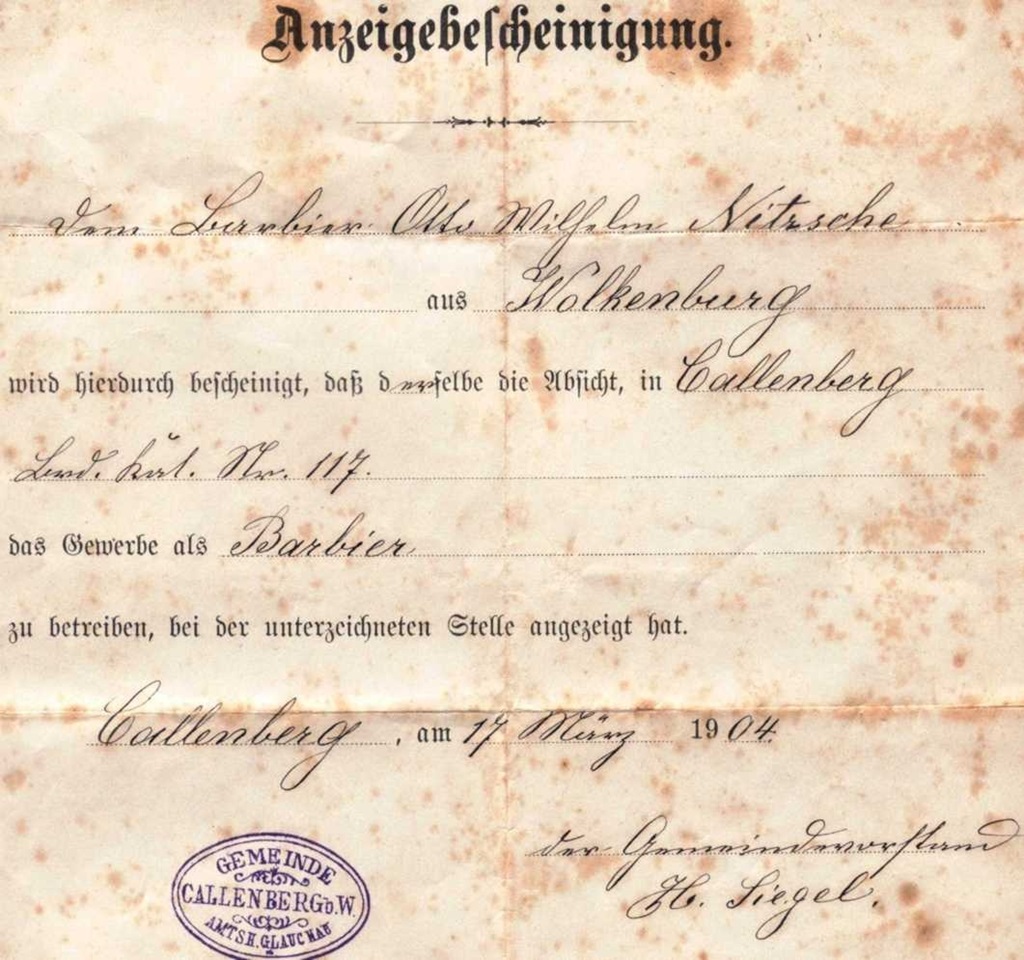 Anzeigebescheinigung.
Dem Barbier Otto Wilhelm Nitzsche
aus Wolkenburg
wird hierdurch bescheinigt, daß derselbe die Absicht, in Callenberg
Brd. Kat. Nr. 117.
das Gewerbe als Barbier
zu betreiben, bei der unterzeichneten Stelle angezeigt hat.
Callenberg, am 17 März 1904.
der Gemeindevorstand
H. Siegel.
GEMEINDE
CALLENBERG b. W.
AMTSH. GLAUCHAU